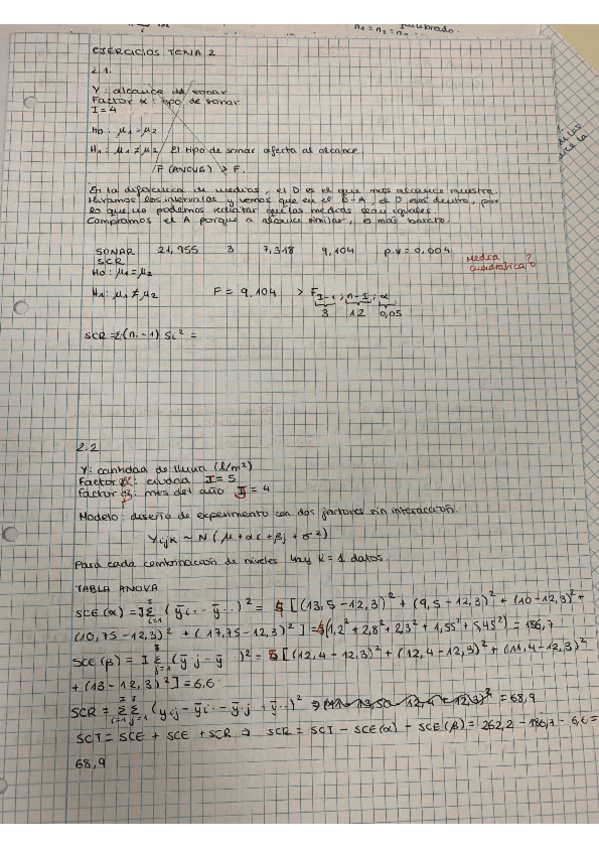 n1 = n2 = n
EJERCICIOS TEMA 2
2.1.
Y: alcance del sonar
Factor α: tipo de sonar
I = 4
H0: μ1 = μ2
H1: μ1 ≠ μ2 El tipo de sonar afecta al alcance.
F (ANOVA) > F.
En la diferencia de medias, el D es el que más alcance muestra.
Miramos los intervalos y vemos que en el D-A, el 0 está dentro, por
lo que no podemos rechazar que las medias sean iguales.
Compramos el A porque a alcance similar, es más barato.
SONAR 21,955 3 7,318 9,104 p.v = 0,004
SCR
Media cuadrática?
H0: μ1 = μ2
H1: μ1 ≠ μ2 F = 9,104 > F I-1; n-I; α
3 12 0,05
SCR = Σ(ni - 1) Si² =
2.2
Y: cantidad de lluvia (l/m²)
Factor α: ciudad I = 5
Factor β: mes del año J = 4
Modelo: diseño de experimento con dos factores sin interacción.
Yijk ~ N (μ + αi + βj + σ²)
Para cada combinación de niveles hay k = 1 datos.
TABLA ANOVA
SCE (α) = J Σ (ȳi.. - ȳ...)² = [(13,5 - 12,3)² + (9,5 - 12,3)² + (10 - 12,3)² +
(10,75 - 12,3)² + (17,75 - 12,3)²] = (1,2² + 2,8² + 2,3² + 1,55² + 5,45²) = 186,7
SCE (β) = I Σ (ȳj - ȳ )² = 5 [(12,4 - 12,3)² + (12,4 - 12,3)² + (11,4 - 12,3)²
+ (13 - 12,3)²] = 6,6
SCR = Σ Σ (yij - ȳi. - ȳ.j + ȳ..)² = 68,9
SCT = SCE + SCE + SCR ⇒ SCR = SCT - SCE(α) - SCE(β) = 262,2 - 186,7 - 6,6 =
68,9